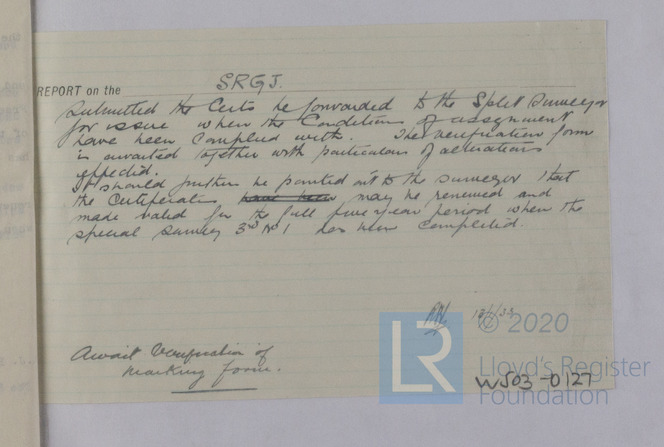 REPORT on the SRGJ.
Submitted the Certs be forwarded to the Split Surveyor
for issue when the Conditions of assignment
have been complied with. The verification form
is awaited together with particulars of alterations
effected.
It should further be pointed out to the surveyor that
the Certificates have been may be renewed and
made valid for the full five year period when the
special survey 3rd No 1 has been completed.
Await Verification of
marking form.
© 2020
LR
Lloyd's Register
Foundation
WS03-0127